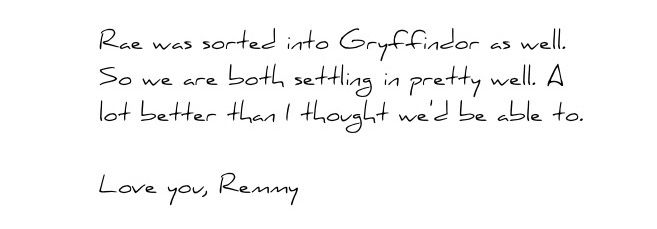 Rae was sorted into Gryffindor as well.
So we are both settling in pretty well. A
lot better than I thought we'd be able to.
Love you, Remmy